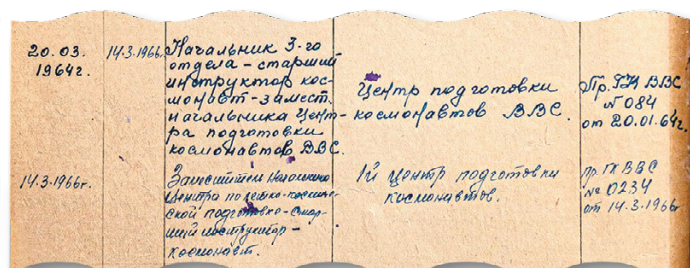 20.03.
1964г.
14.3.1966г.
Начальник 3-го
отдела - старший
инструктор кос-
монавт - замест.
начальника Цент-
ра подготовки
космонавтов ВВС.
Центр подготовки
космонавтов ВВС.
Пр. ГК ВВС
№ 084
от 20.01.64г.
14.3.1966г.
Заместитель Начальника
Центра по летно-космиче-
ской подготовке - Стар-
ший инструктор -
космонавт.
1й Центр подготовки
космонавтов.
пр. ГК ВВС
№ 0234
от 14.3.1966